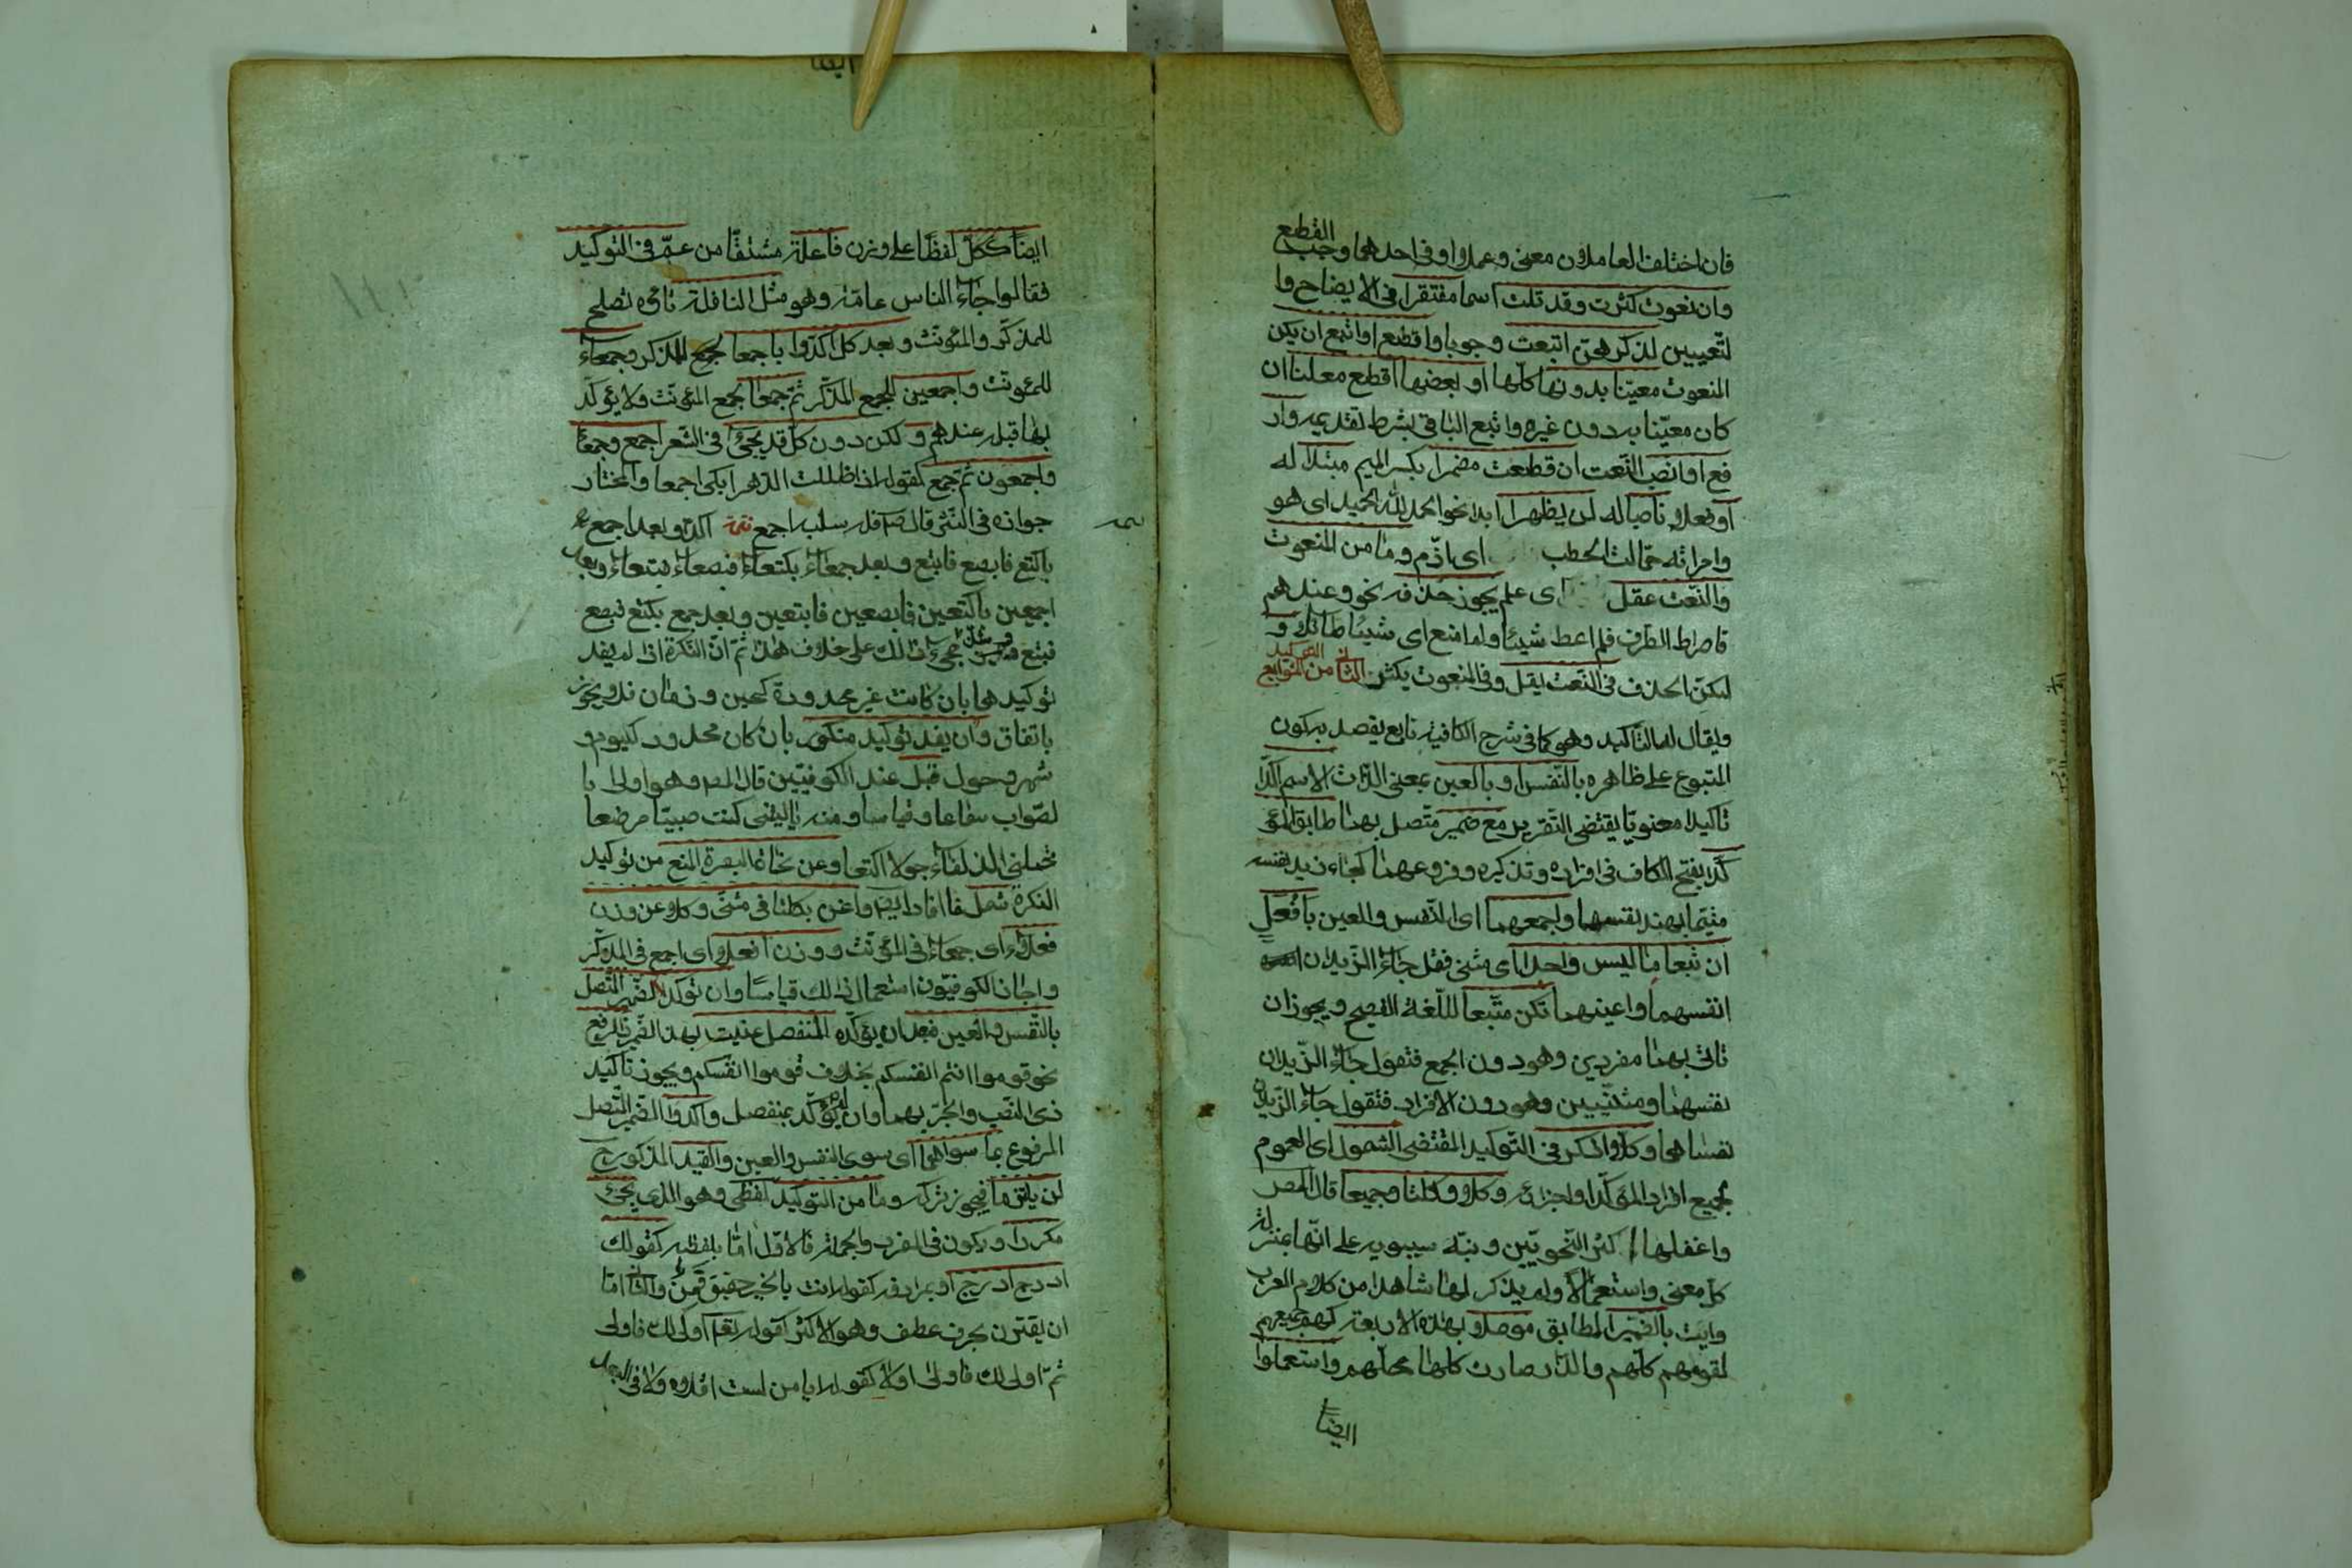 فان اختلف العاملان معنى وعملا او فى احدهما وجب القطع
وان نعوت كثرت وقد تلت اسما مفتقرا فى الايضاح وا
لتعيين لذكرهن اتبعت وجوبا واقطع او اتبع ان يكن
المنعوت معينا بدونها كلها او بعضها اقطع معلنا ان
كان معينا بدون غيره واتبع الباقى بشرط تقديمه وار
فع او انصب النعت ان قطعت مضمرا بكسر الميم مبتدأ له
او فعلا ناصبا له لن يظهرا ابدا نحو الحمد لله الحميد اى هو
وامراته حمالت الحطب اى اذم وما من المنعوت
والنعت عقل اى علم يجوز حذفه نحو وعندهم
قاصرات الطرف فلم اعط شيئا ولم امنع اى شيئا طائلا و
لكن الحذف فى النعت يقل وفى المنعوت يكثر الثانى من التوابع التوكيد
ويقال له التاكيد وهو كما فى شرح الكافية تابع يقصد به كون
المتبوع على ظاهره بالنفس او بالعين بمعنى الذات الاسم اكدا
تاكيدا معنويا يقتضى التقرير مع ضمير متصل بهما طابق المؤ
كدا بفتح الكاف فى افراده وتذكيره وفروعهما كجاء زيد نفسه
متيما بهند نفسها واجمعهما اى النفس والعين بافعل
ان تبعا ما ليس واحدا اى مثنى فقل جاء الزيدان
انفسهما واعينهما تكن متبعا للغة الفصيح ويجوز ان
تاتى بهما مفردين وهو دون الجمع فتقول جاء الزيدان
نفسهما ومثنيين وهو دون الافراد فتقول جاء الزيدان
نفساهما وكلا اذكر فى التوكيد المقتضى الشمول اى العموم
لجميع افراد المؤكد او اجزائه وكلا وكلتا وجميعا قال المصـ
واغفلها اكثر النحويين ونبه سيبويه على انها بمنزلة
كل معنى واستعمالا ولم يذكر لها شاهدا من كلام العرب
وايت بالضمير المطابق موصلا بهذه الاربعة كهم جميعهم
لقومهم كلهم والدار صارت كلها محلهم واستعملوا
ايضا
ايضا ككل لفظا على وزن فاعلة مشتقا من عم فى التوكيد
فقالوا جاء الناس عامة وهو مثل النافلة تاؤه تصلح
للمذكر والمؤنث وبعد كل اكدوا باجمعا لجمع المذكر وجمعاء
للمؤنث واجمعين لجمع المذكر ثم جمعا لجمع المؤنث ولا يؤكد
بها قبله عندهم و لكن دون كل قد يجئ فى الشعر اجمع وجمعا
واجمعون ثم جمع كقوله اذا ظللت الدهر ابكى اجمعا والمختار
جوازه فى النثر قال صـ فله سلبه اجمع تتمة اكدوا بعد اجمع
باكتع فابصع فابتع وبعد جمعاء بكتعاء فبصعاء فبتعاء وبعد
اجمعين باكتعين فابصعين فابتعين وبعد جمع بكتع فبصع
فبتع وشذ مجئ ذلك على خلاف هذا ثم ان النكرة اذا لم يفد
توكيدها بان كانت غير محدودة كحين وزمان فلا يجوز
باتفاق وان يفد توكيد منكور بان كان محدود كيوم و
شهر وحول قبل عند الكوفيين قال المصـ وهو اولى با
لصواب سماعا وقياسا ومنه يا ليتنى كنت صبيا مرضعا
تحملنى الذلفاء حولا اكتعا وعن نحاة البصرة المنع من توكيد
النكرة شمل ما افاد ايضا واغن بكلتا فى مثنى وكلا عن وزن
فعلاء اى جمعاء فى المؤنث ووزن افعلا اى اجمع فى المذكر
واجاز الكوفيون استعمال ذلك قياسا وان تؤكد الضمير المتصل
بالنفس والعين فبعد ان يؤكده المنفصل عنيت بهذا الضمير ذا الرفع
نحو قوموا انتم انفسكم بخلاف قوموا انفسكم ويجوز تاكيد
ذى النصب والجر بهما وان لم يؤكد بمنفصل واكدوا الضمير المتصل
المرفوع بما سواهما اى سوى النفس والعين والقيد المذكور ح
لن يلتزما فيجوز تركه وما من التوكيد لفظى وهو الذى يجئ
مكررا ويكون فى المفرد والجملة فالاول اما بلفظه كقولك
ادرجى ادرجى او بمرادفه كقوله انت بالخير حقيق قمن والثانى اما
ان يقترن بحرف عطف وهو الاكثر كقوله تعـ اولى لك فاولى
ثم اولى لك فاولى او لا كقوله ايا من لست اقلاه ولا فى البعد